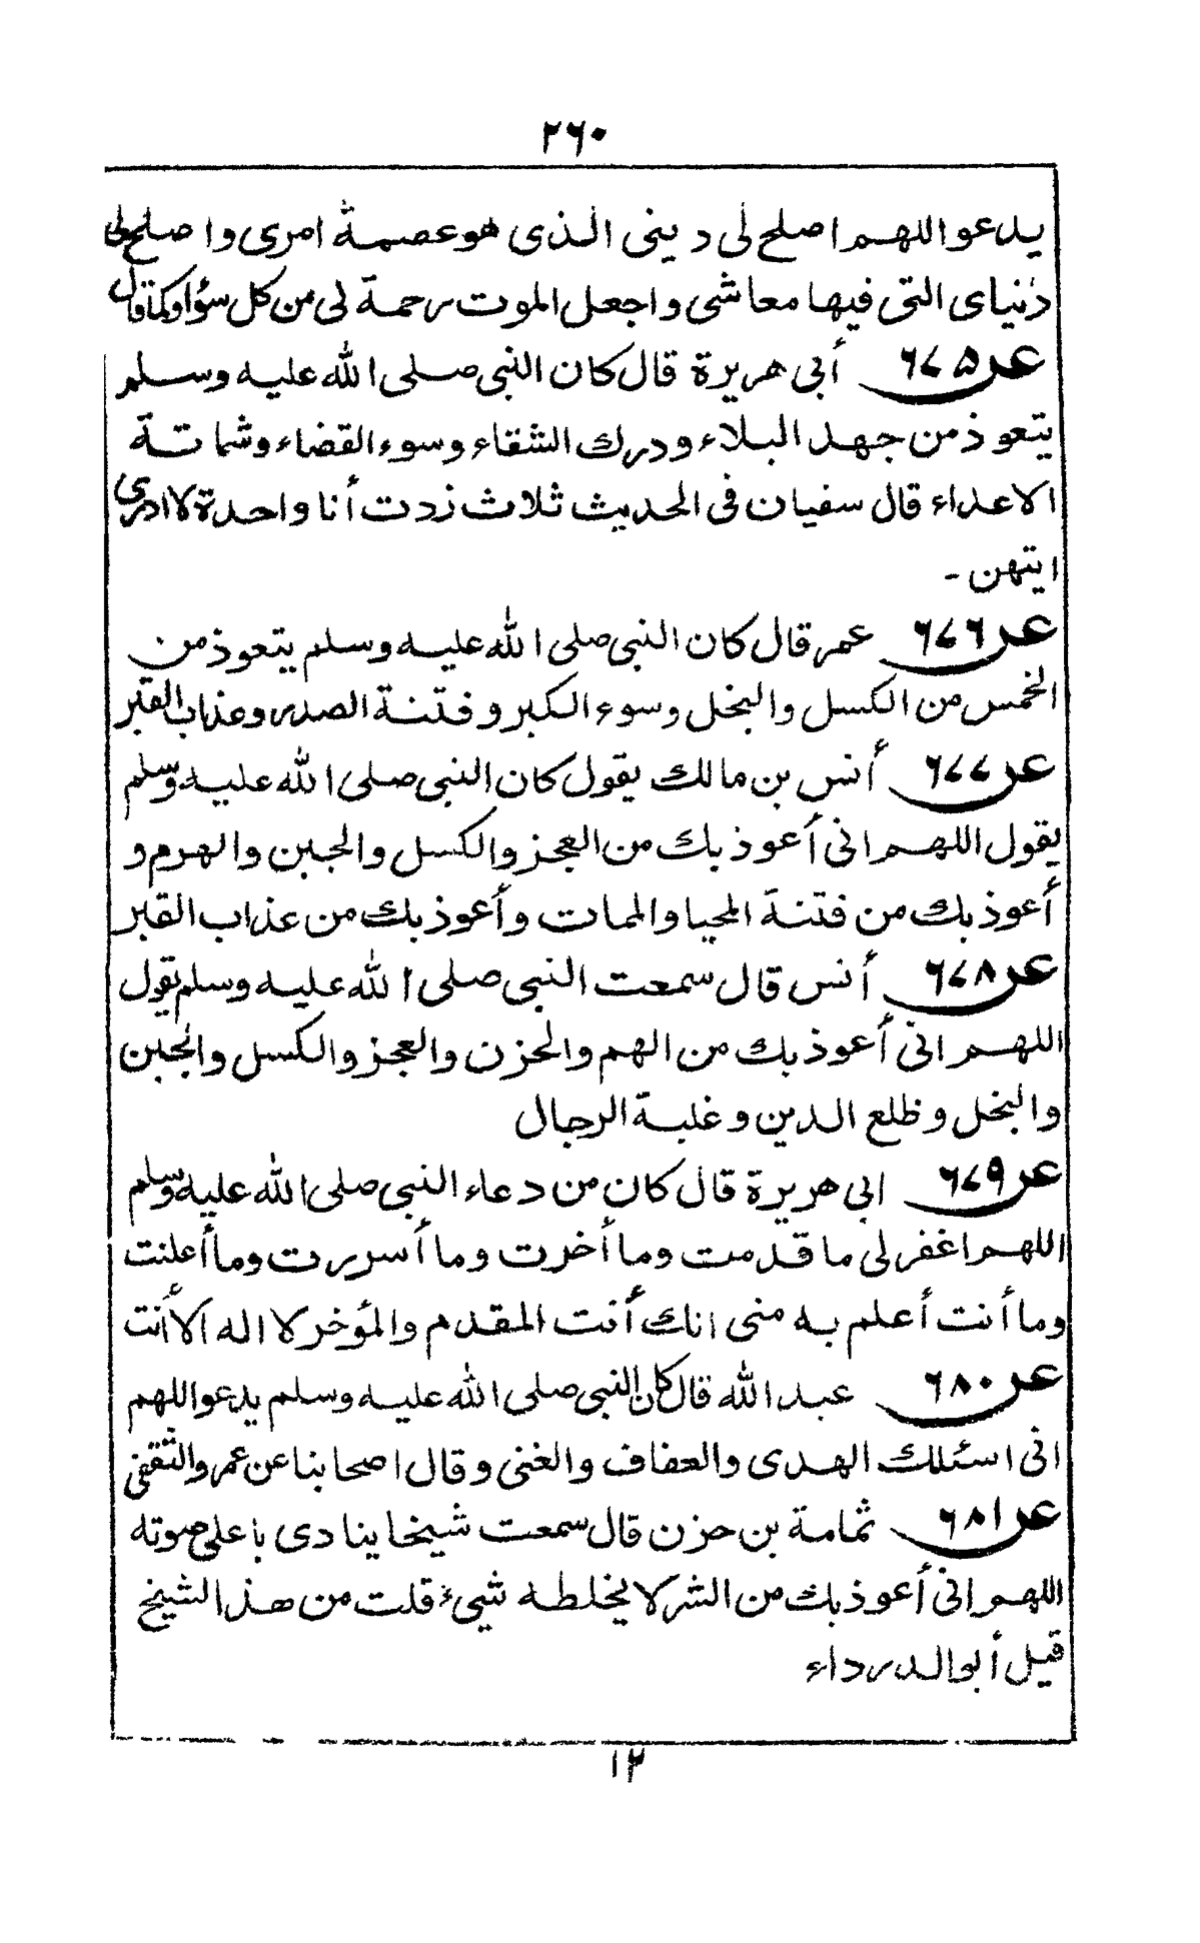 ۲۶۰
يدعو اللهم اصلح لى دينى الذى هو عصمة امرى واصلح لى
دنياى التى فيها معاشى واجعل الموت رحمة لى من كل سؤ او كما قال
عن ۶۷۵ أبى هريرة قال كان النبى صلى الله عليه وسلم
يتعوذ من جهد البلاء ودرك الشقاء وسوء القضاء وشماتة
الاعداء قال سفيان فى الحديث ثلاث زدت أنا واحدة لا ادرى
ايتهن -
عن ۶۷۶ عمر قال كان النبى صلى الله عليه وسلم يتعوذ من
الخمس من الكسل والبخل وسوء الكبر وفتنة الصدر وعذاب القبر
عن ۶۷۷ أنس بن مالك يقول كان النبى صلى الله عليه وسلم
يقول اللهم انى أعوذ بك من العجز والكسل والجبن والهرم و
أعوذ بك من فتنة المحيا والممات وأعوذ بك من عذاب القبر
عن ۶۷۸ أنس قال سمعت النبى صلى الله عليه وسلم يقول
اللهم انى أعوذ بك من الهم والحزن والعجز والكسل والجبن
والبخل وظلع الدين وغلبة الرجال
عن ۶۷۹ ابى هريرة قال كان من دعاء النبى صلى الله عليه وسلم
اللهم اغفر لى ما قدمت وما أخرت وما أسررت وما أعلنت
وما أنت أعلم به منى انك أنت المقدم والمؤخر لا اله الا أنت
عن ۶۸۰ عبد الله قال كان النبى صلى الله عليه وسلم يدعو اللهم
انى اسئلك الهدى والعفاف والغنى وقال اصحابنا عن عمر والثقفى
عن ۶۸۱ ثمامة بن حزن قال سمعت شيخا ينادى باعلى صوته
اللهم انى أعوذ بك من الشر لا يخلطه شيئ قلت من هذا الشيخ
قيل أبو الدرداء
۱۲